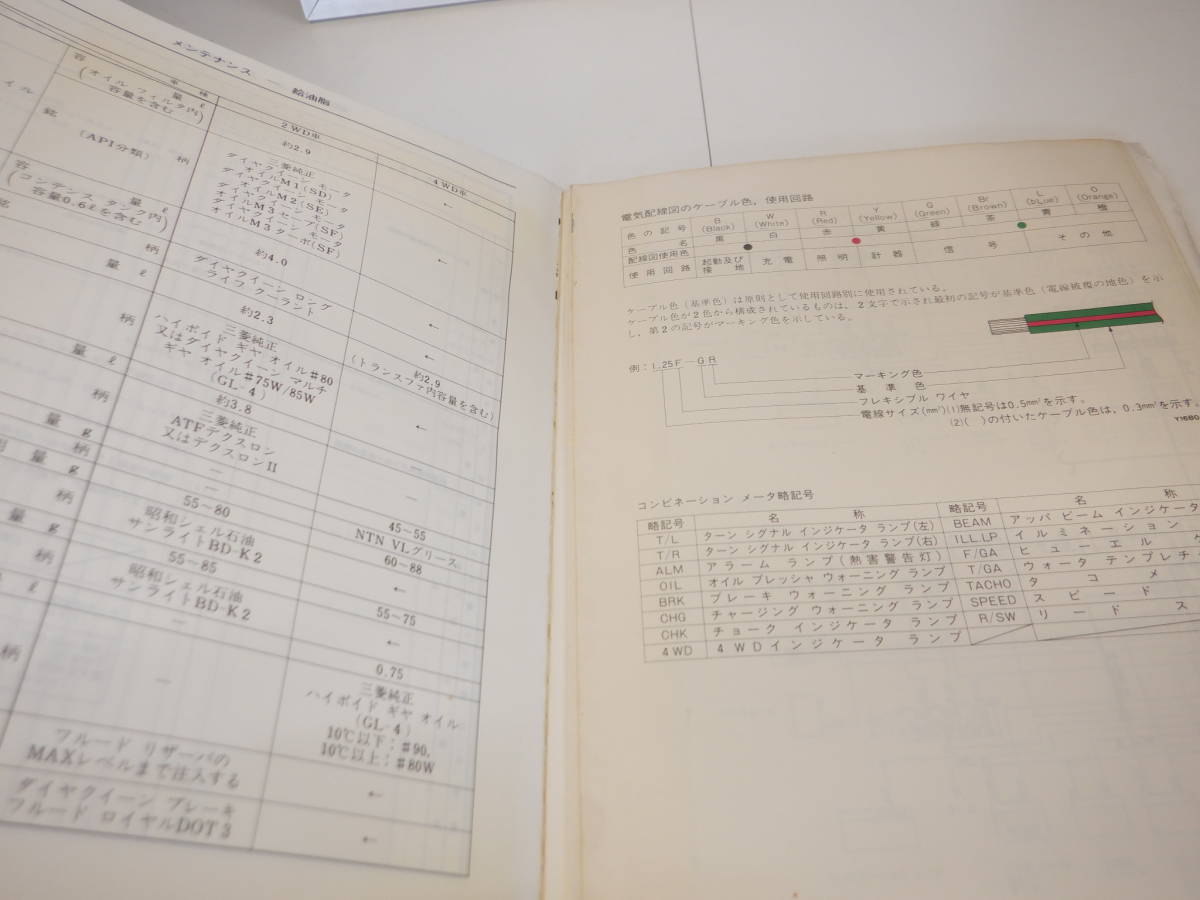 メンテナンス — 給油脂
車種
2WD車
4WD車
容 量 ℓ
(オイル フィルタ内
容量を含む)
約2.9
←
イル
銘 柄
(API分類)
三菱純正
ダイヤクイーン モータ
オイルM1(SD)
ダイヤクイーン モータ
オイルM2(SE)
ダイヤクイーン モータ
オイルM3ターボ(SF)
←
容 量 ℓ
(コンデンス タンク内
容量0.6ℓを含む)
約4.0
←
銘 柄
ダイヤクイーン ロング
ライフ クーラント
←
量 ℓ
約2.3
約2.9
(トランスファ内容量を含む)
柄
三菱純正
ハイポイド ギヤ オイル#80
又はダイヤクイーン マルチ
ギヤ オイル#75W/85W
(GL-4)
←
量 ℓ
約3.8
—
柄
三菱純正
ATFデクスロン
又はデクスロンII
—
量 g
—
45~55
柄
—
NTN VLグリース
量 g
55~80
60~88
柄
昭和シェル石油
サンライトBD-K2
←
量 g
55~85
55~75
柄
昭和シェル石油
サンライトBD-K2
←
ℓ
—
0.75
柄
—
三菱純正
ハイポイド ギヤ オイル
(GL-4)
10℃以下:#90,
10℃以上:#80W
フルード リザーバの
MAXレベルまで注入する
←
ダイヤクイーン ブレーキ
フルード ロイヤルDOT3
←
電気配線図のケーブル色,使用回路
色の記号 B (Black) W (White) R (Red) Y (Yellow) G (Green) Br (Brown) L (bLue) O (Orange)
色名 黒 白 赤 黄 緑 茶 青 橙
配線図使用色
使用回路 起動及び接地 充電 照明 計器 信号 その他
ケーブル色(基準色)は原則として使用回路別に使用されている。
ケーブル色が2色から構成されているものは,2文字で示され最初の記号が基準色(電線被覆の地色)を示
し,第2の記号がマーキング色を示している。
例:1.25F-GR
マーキング色
基準色
フレキシブル ワイヤ
電線サイズ(mm²)(1)無記号は0.5mm²を示す。
(2)( )の付いたケーブル色は,0.3mm²を示す。
コンビネーション メータ略記号
略記号 名称 略記号 名称
T/L ターン シグナル インジケータ ランプ(左) BEAM アッパ ビーム インジケータ
T/R ターン シグナル インジケータ ランプ(右) ILL.LP イルミネーション
ALM アラーム ランプ(熱害警告灯) F/GA ヒューエル
OIL オイル プレッシャ ウォーニング ランプ T/GA ウォータ テンプレチ
BRK ブレーキ ウォーニング ランプ TACHO タコメ
CHG チャージング ウォーニング ランプ SPEED スピード
CHK チョーク インジケータ ランプ R/SW リード ス
4WD 4WDインジケータ ランプ